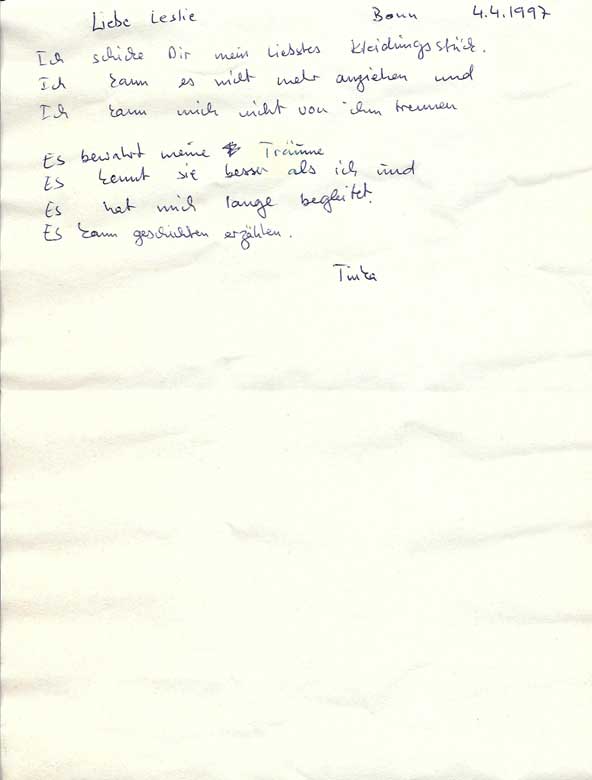 Liebe Leslie Bonn 4.4.1997
Ich schicke Dir mein liebstes Kleidungsstück.
Ich kann es nicht mehr anziehen und
Ich kann mich nicht von ihm trennen
Es bewahrt meine Träume
Es kennt sie besser als ich und
Es hat mich lange begleitet.
Es kann geschichten erzählen.
Tinka